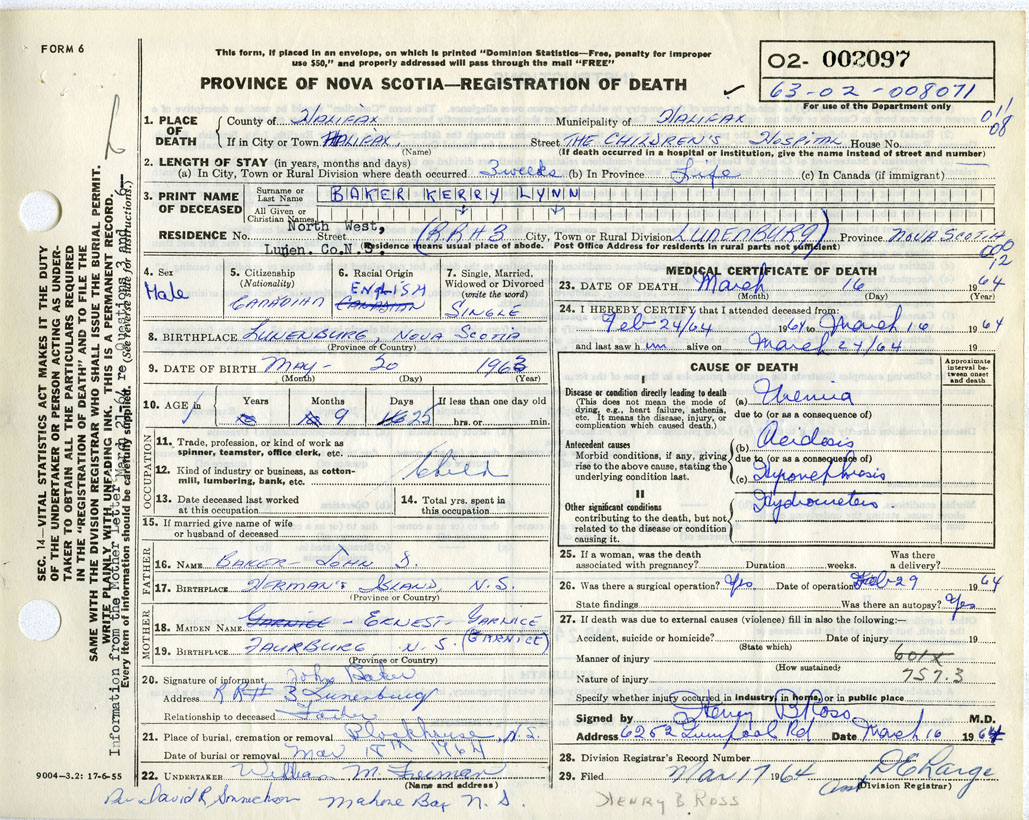 FORM 6
This form, if placed in an envelope, on which is printed "Dominion Statistics—Free, penalty for improper
use $50," and properly addressed will pass through the mail "FREE"
PROVINCE OF NOVA SCOTIA—REGISTRATION OF DEATH
02- 002097
63-02-008071
For use of the Department only
011
08
1. PLACE OF DEATH
County of Halifax Municipality of Halifax
If in City or Town Halifax, Street THE CHILDREN'S HOSPITAL House No.
(Name) (If death occurred in a hospital or institution, give the name instead of street and number)
2. LENGTH OF STAY (in years, months and days)
(a) In City, Town or Rural Division where death occurred 3 weeks (b) In Province Life (c) In Canada (if immigrant)
3. PRINT NAME OF DECEASED
Surname or Last Name BAKER KERRY LYNN
All Given or Christian Names
North West,
RESIDENCE No. Street (RR#3 City, Town or Rural Division LUNENBURG) Province NOVA SCOTIA
Lunen. Co. N.S. (Residence means usual place of abode. Post Office Address for residents in rural parts not sufficient)
000
12
4. Sex
Male
5. Citizenship
(Nationality)
CANADIAN
6. Racial Origin
ENGLISH
CANADIAN
7. Single, Married, Widowed or Divorced
(write the word)
SINGLE
8. BIRTHPLACE LUNENBURG, NOVA SCOTIA
(Province or Country)
9. DATE OF BIRTH MAY - 20 1963
(Month) (Day) (Year)
10. AGE in
Years Months Days If less than one day old
9 25 hrs. or min.
OCCUPATION
11. Trade, profession, or kind of work as
spinner, teamster, office clerk, etc.
12. Kind of industry or business, as cotton-
mill, lumbering, bank, etc.
Child
13. Date deceased last worked
at this occupation
14. Total yrs. spent in
this occupation
15. If married give name of wife
or husband of deceased
FATHER
16. NAME BAKER - JOHN S.
17. BIRTHPLACE HERMAN'S ISLAND, N.S.
(Province or Country)
MOTHER
18. MAIDEN NAME GARNICE - ERNEST - GARNICE
(GARNICE)
19. BIRTHPLACE FAUXBURG N.S.
(Province or Country)
20. Signature of informant John Baker
Address RR# 3 Lunenburg
Relationship to deceased Father
21. Place of burial, cremation or removal Blockhouse, N.S.
Date of burial or removal Mar 18TH 1964
22. UNDERTAKER William M. Freeman
(Name and address)
9004—3.2: 17-6-55
Per David R Mahone Bay N.S.
MEDICAL CERTIFICATE OF DEATH
23. DATE OF DEATH March 16 1964
(Month) (Day) (Year)
24. I HEREBY CERTIFY that I attended deceased from:
Feb 24/64 1964 to March 16 1964
and last saw him alive on March 24/64 19
CAUSE OF DEATH
Approximate interval between onset and death
I
Disease or condition directly leading to death
(This does not mean the mode of
dying, e.g., heart failure, asthenia,
etc. It means the disease, injury, or
complication which caused death.)
(a) Uremia
due to (or as a consequence of)
Antecedent causes
Morbid conditions, if any, giving
rise to the above cause, stating the
underlying condition last.
(b) Acidosis
due to (or as a consequence of)
(c) Hyronephrosis
II
Other significant conditions
contributing to the death, but not
related to the disease or condition
causing it.
Hydroureters.
25. If a woman, was the death
associated with pregnancy? Duration weeks. Was there
a delivery?
26. Was there a surgical operation? Yes Date of operation Feb 29 1964
State findings Was there an autopsy? Yes
27. If death was due to external causes (violence) fill in also the following:—
Accident, suicide or homicide? Date of injury 19
(State which)
Manner of injury 601X
(How sustained?)
Nature of injury 757.3
Specify whether injury occurred in industry, in home, or in public place
Signed by Henry B Ross M.D.
Address 6262 Liverpool Rd Date March 16 1964
28. Division Registrar's Record Number
29. Filed Mar 17 1964
(Division Registrar)
HENRY B ROSS
SEC. 14—VITAL STATISTICS ACT MAKES IT THE DUTY
OF THE UNDERTAKER OR PERSON ACTING AS UNDER-
TAKER TO OBTAIN ALL THE PARTICULARS REQUIRED
IN THE "REGISTRATION OF DEATH" AND TO FILE THE
SAME WITH THE DIVISION REGISTRAR WHO SHALL ISSUE THE BURIAL PERMIT.
WRITE PLAINLY WITH UNFADING INK. THIS IS A PERMANENT RECORD.
Information from the Mother Letter March 21-64 re Questions 3 and 6
Every item of information should be carefully supplied. (See reverse side for instructions.)